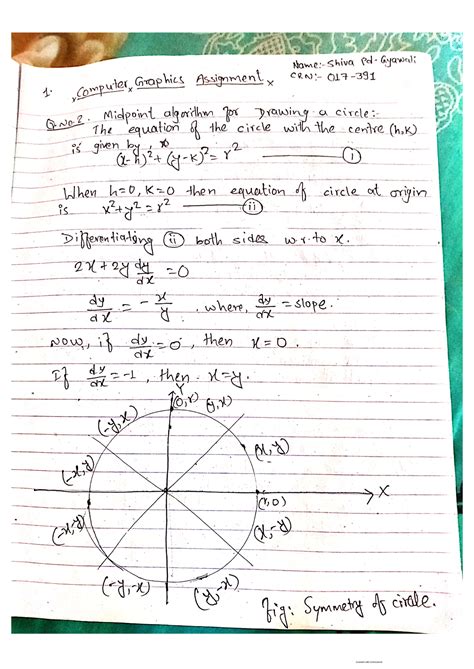 Name:- Shiva Pd. Gyawali
CRN:- 017-391
1.
Computer Graphics Assignment
Q.No.2. Midpoint algorithm for Drawing a circle:-
The equation of the circle with the centre (h,k)
is given by,
(x-h)²+(y-k)²=r² ——— (i)
When h=0, K=0 then equation of circle at origin
is x²+y²=r² ——— (ii)
Differentiating (ii) both sides w.r.to x.
2x+2y dy/dx =0
dy/dx = -x/y , where, dy/dx = slope.
Now, if dy/dx=0, then x=0.
If dy/dx=-1, then x=y.
Y
(0,r) (y,x)
(-y,x)
(x,y)
(-x,y)
(r,0) X
(-x,-y) (x,-y)
(-y,-x) (y,-x)
Fig: Symmetry of circle.